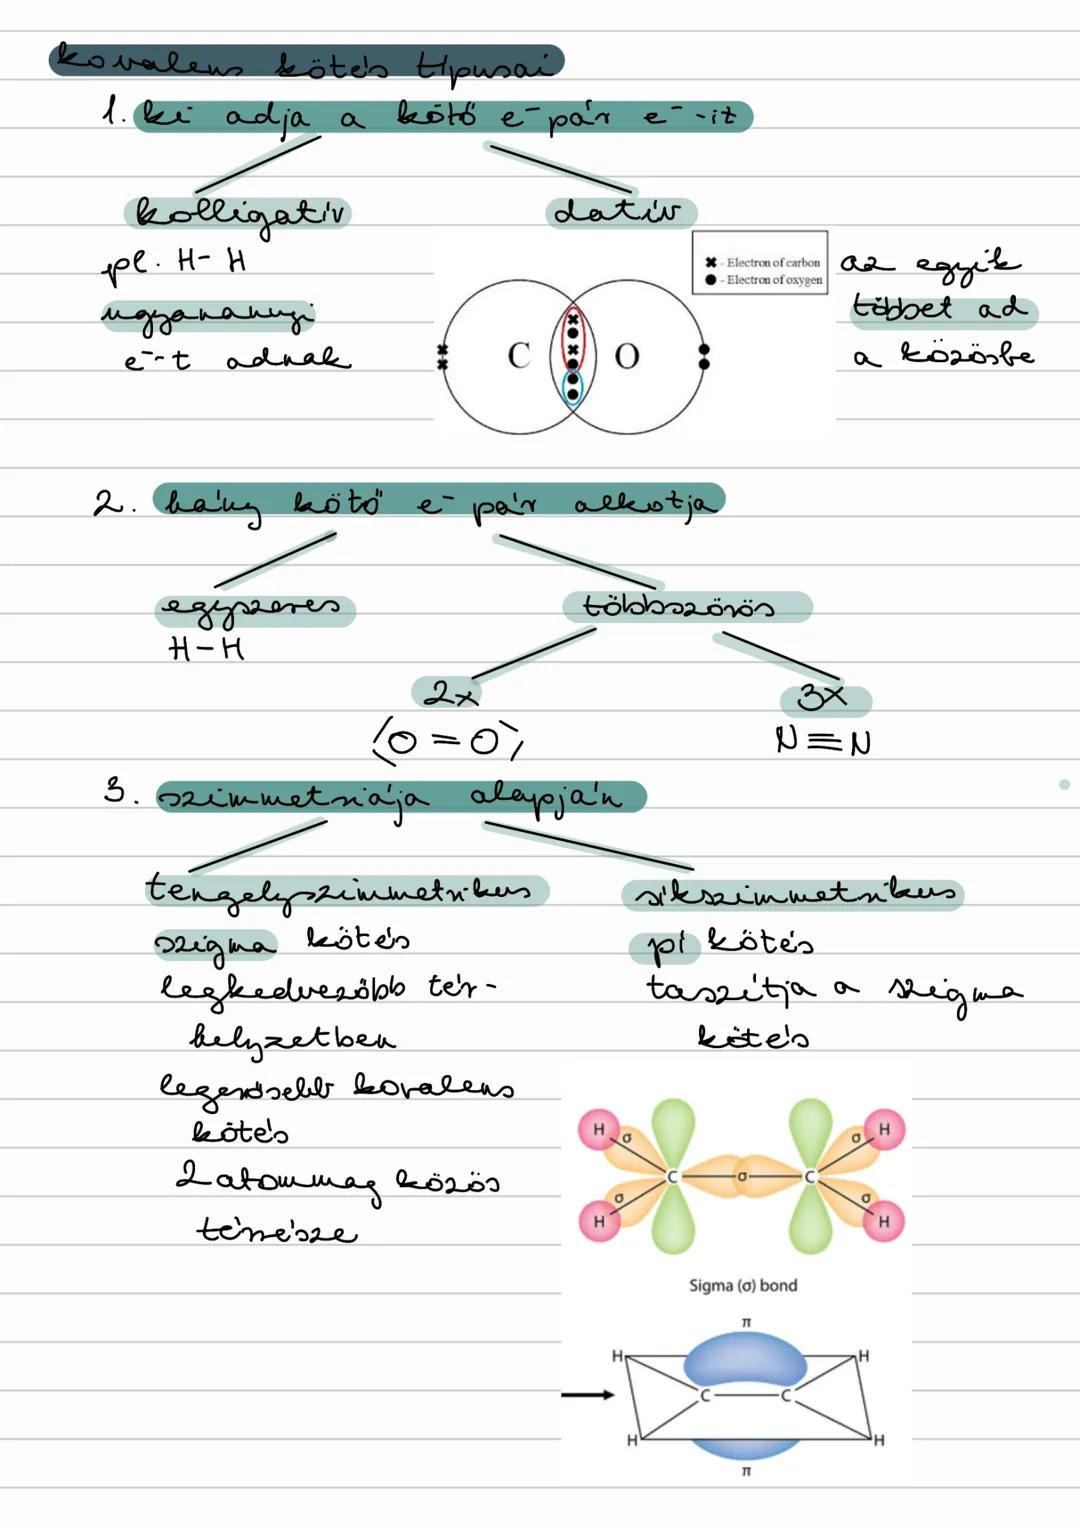 kovalens kötés típusai
1. ki adja a kötő e⁻pár e⁻-it
kolligatív
datív
pl. H-H
ugyanannyi
e⁻-t adnak
× - Electron of carbon
● - Electron of oxygen
C
O
az egyik
többet ad
a közösbe
2. hány kötő e⁻ pár alkotja
egyszeres
H-H
többszörös
2x
3x
⟨O=O⟩
N≡N
3. szimmetriája alapján
tengelyszimmetrikus
szigma kötés
legkedvezőbb tér-
helyzetben
legerősebb kovalens
kötés
2 atommag közös
térrésze
síkszimmetrikus
pí kötés
taszítja a szigma
kötés
H σ σ H
C σ C
H σ σ H
Sigma (σ) bond
π
H H
C C
H H
π